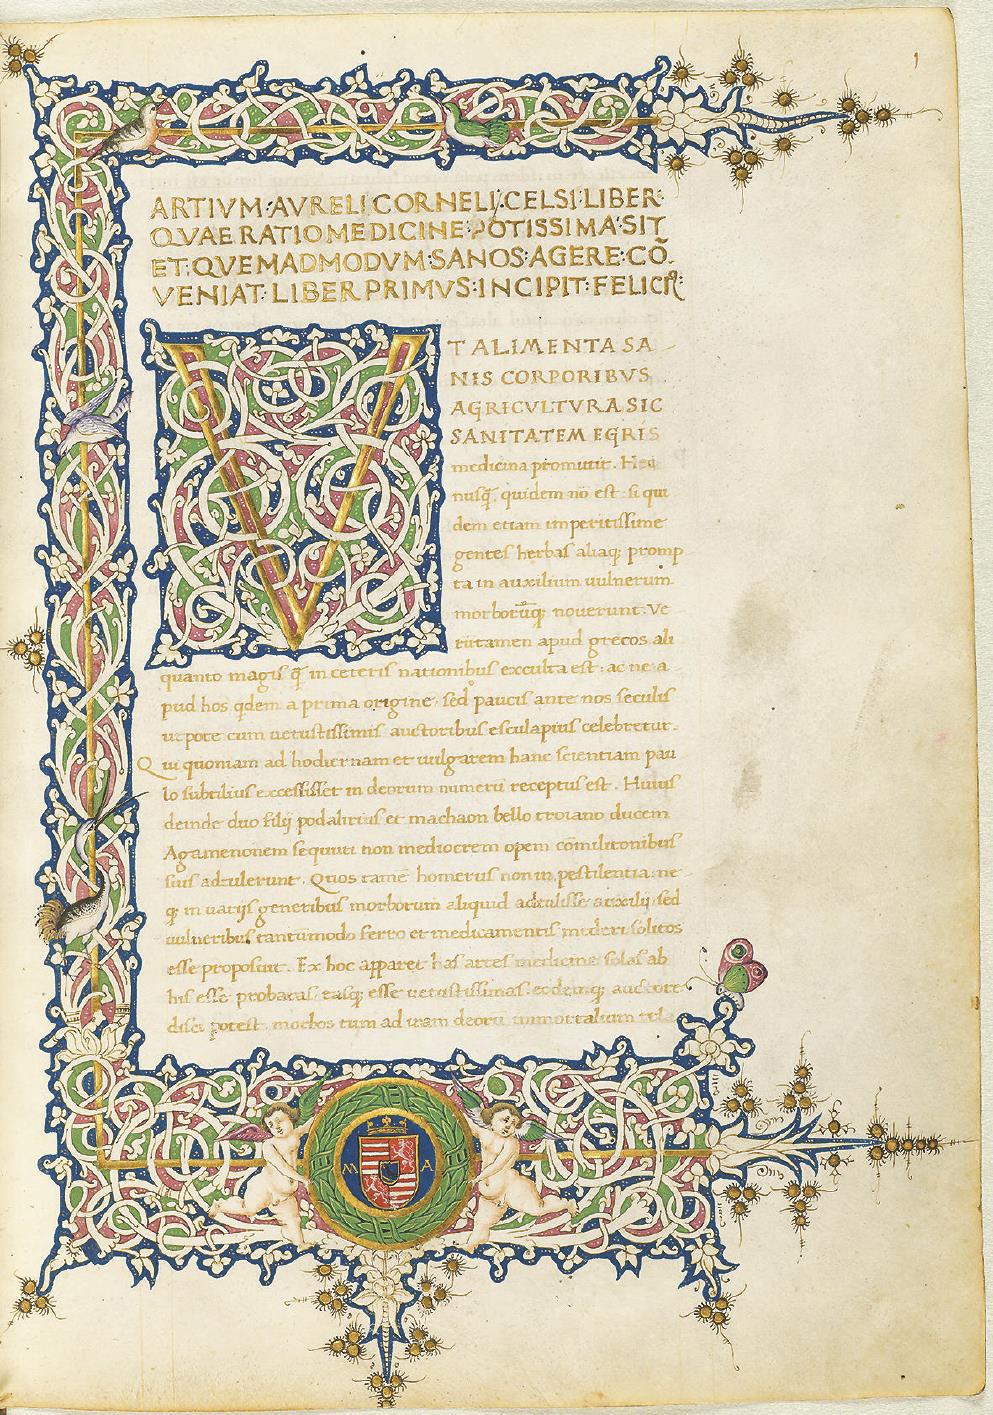 1
ARTIVM·AVRELI·CORNELI·CELSI·LIBER·
QVAE RATIO MEDICINE·POTISSIMA·SIT
ET·QVEMADMODVM·SANOS·AGERE·CÕ
VENIAT·LIBER PRIMVS·INCIPIT·FELICIT
V T ALIMENTA SA
NIS CORPORIBVS
AGRICVLTVRA SIC
SANITATEM EGRIS
medicina promittit. Hec
nusq̃ quidem nõ est: si qui
dem etiam imperitissime
gentes herbas aliaq; promp
ta in auxilium uulnerum
morborũq; nouerunt. Ve
rũtamen apud grecos ali
quanto magis q̃ in ceteris nationibus exculta est: ac ne a
pud hos qdem a prima origine, sed paucis ante nos seculis
ut pote cum uetustissimis auctoribus esculapius celebretur.
Qui quoniam ad hodiernam et uulgarem hanc scientiam pau
lo subtilius excessisset in deorum numerũ receptus est. Huius
deinde duo filij podalirius et machaon bello troiano ducem
Agamenonem sequuti non mediocrem opem cõmilitonibus
suis adtulerunt. Quos tamẽ homerus non in pestilentia ne
q; in uarijs generibus morborum aliquid adtulisse auxilij sed
uulneribus tantummodo ferro et medicamentis mederi solitos
esse proposuit. Ex hoc apparet has artes medicine solas ab
his esse probatas, easq; esse uetustissimas. eodemq; auctore
disci potest. morbos tum ad iram deorũ immortalium
M A